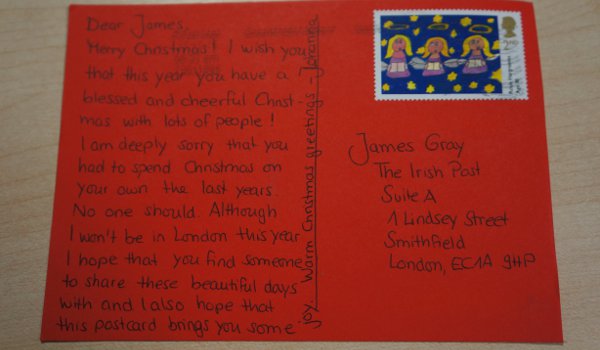 Dear James,
Merry Christmas! I wish you
that this year you have a
blessed and cheerful Christ-
mas with lots of people!
I am deeply sorry that you
had to spend Christmas on
your own the last years.
No one should. Although
I won't be in London this year
I hope that you find someone
to share these beautiful days
with and I also hope that
this postcard brings you some
joy. Warm Christmas greetings - Johanna
2ND
James Gray
The Irish Post
Suite A
1 Lindsey Street
Smithfield
London, EC1A 9HP